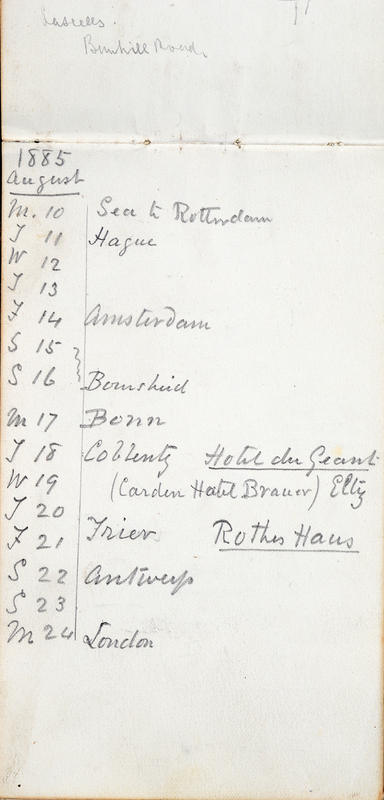 Lascelles.
Bunhill Road.
1885
August
M. 10 Sea to Rotterdam
T 11 Hague
W 12
T 13
F 14 Amsterdam
S 15
S 16
M 17 Bonn
T 18 Coblentz Hotel du Geant
W 19 (Carden Hotel Brauer) Eltz
T 20
F 21 Trier Rothes Haus
S 22 Antwerp
S 23
M 24 London